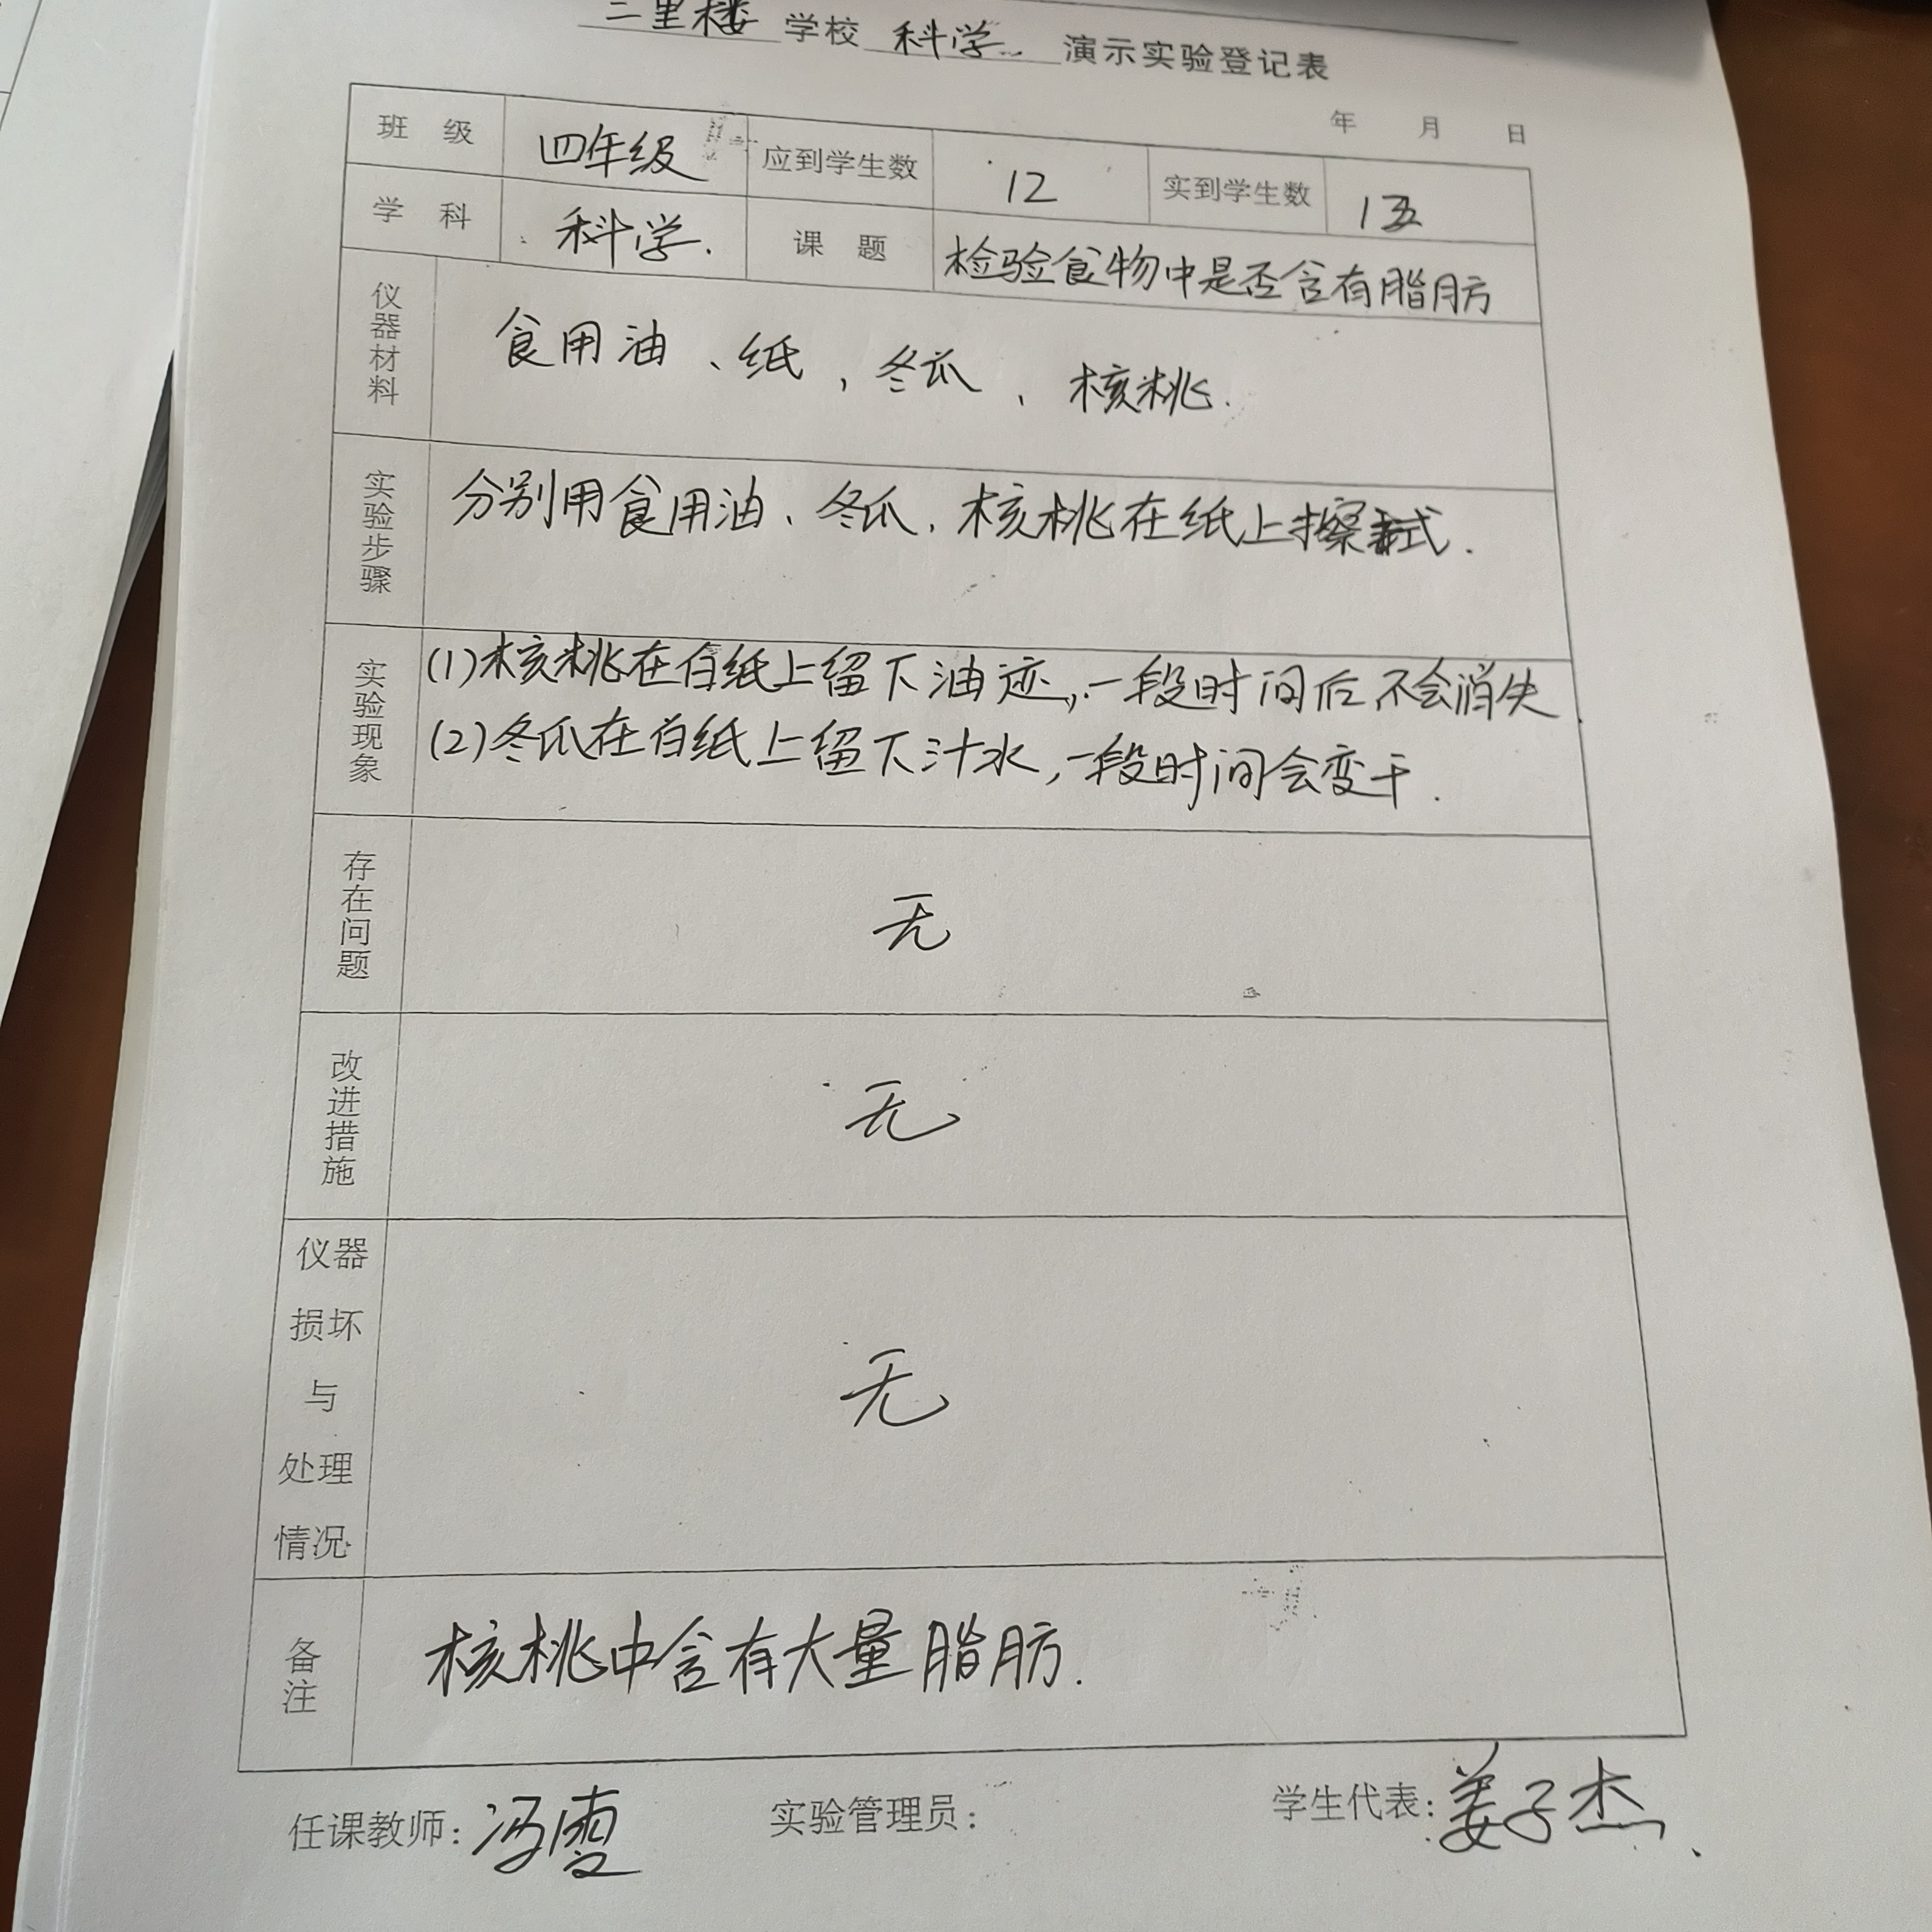 三里楼 学校 科学 演示实验登记表
年 月 日
班 级 四年级 应到学生数 12 实到学生数
学 科 科学. 课 题 检验食物中是否含有脂肪
仪器材料 食用油、纸、冬瓜、核桃.
实验步骤 分别用食用油、冬瓜、核桃在纸上擦拭.
实验现象 (1)核桃在白纸上留下油迹,一段时间后不会消失.
(2)冬瓜在白纸上留下汁水,一段时间会变干.
存在问题 无
改进措施 无
仪器损坏与处理情况 无
备注 核桃中含有大量脂肪.
任课教师: 实验管理员: 学生代表:姜子杰